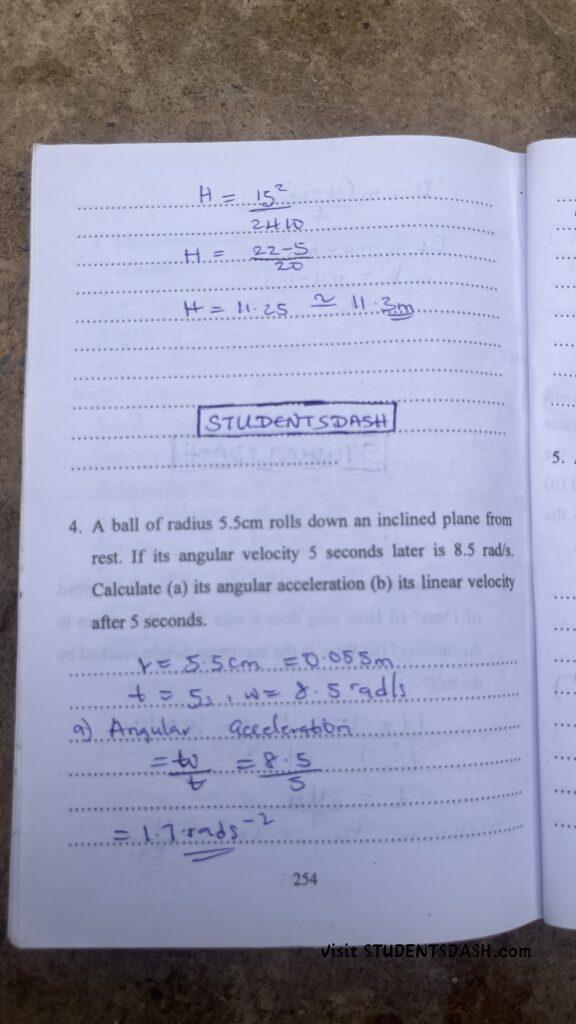 H = 15²
2×10
H = 22-5
20
H = 11.25 ≃ 11.3m
STUDENTSDASH
5.
4. A ball of radius 5.5cm rolls down an inclined plane from
rest. If its angular velocity 5 seconds later is 8.5 rad/s.
Calculate (a) its angular acceleration (b) its linear velocity
after 5 seconds.
r = 5.5cm = 0.055m
t = 5s, w = 8.5 rad/s
a) Angular acceleration
= w = 8.5
t 5
= 1.7 rads⁻²
254
Visit STUDENTSDASH.com